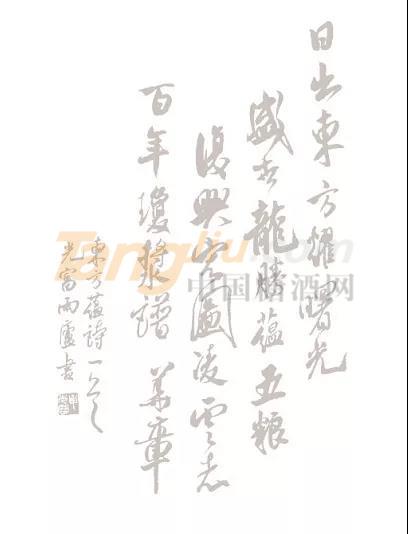 日出東方耀曙光
盛世龍騰蘊五粮
復興宏圖凌雲志
百年瓊漿譜華章
東方蘊詩一首
光富雨書
Tangjiu.com
中国糖酒网